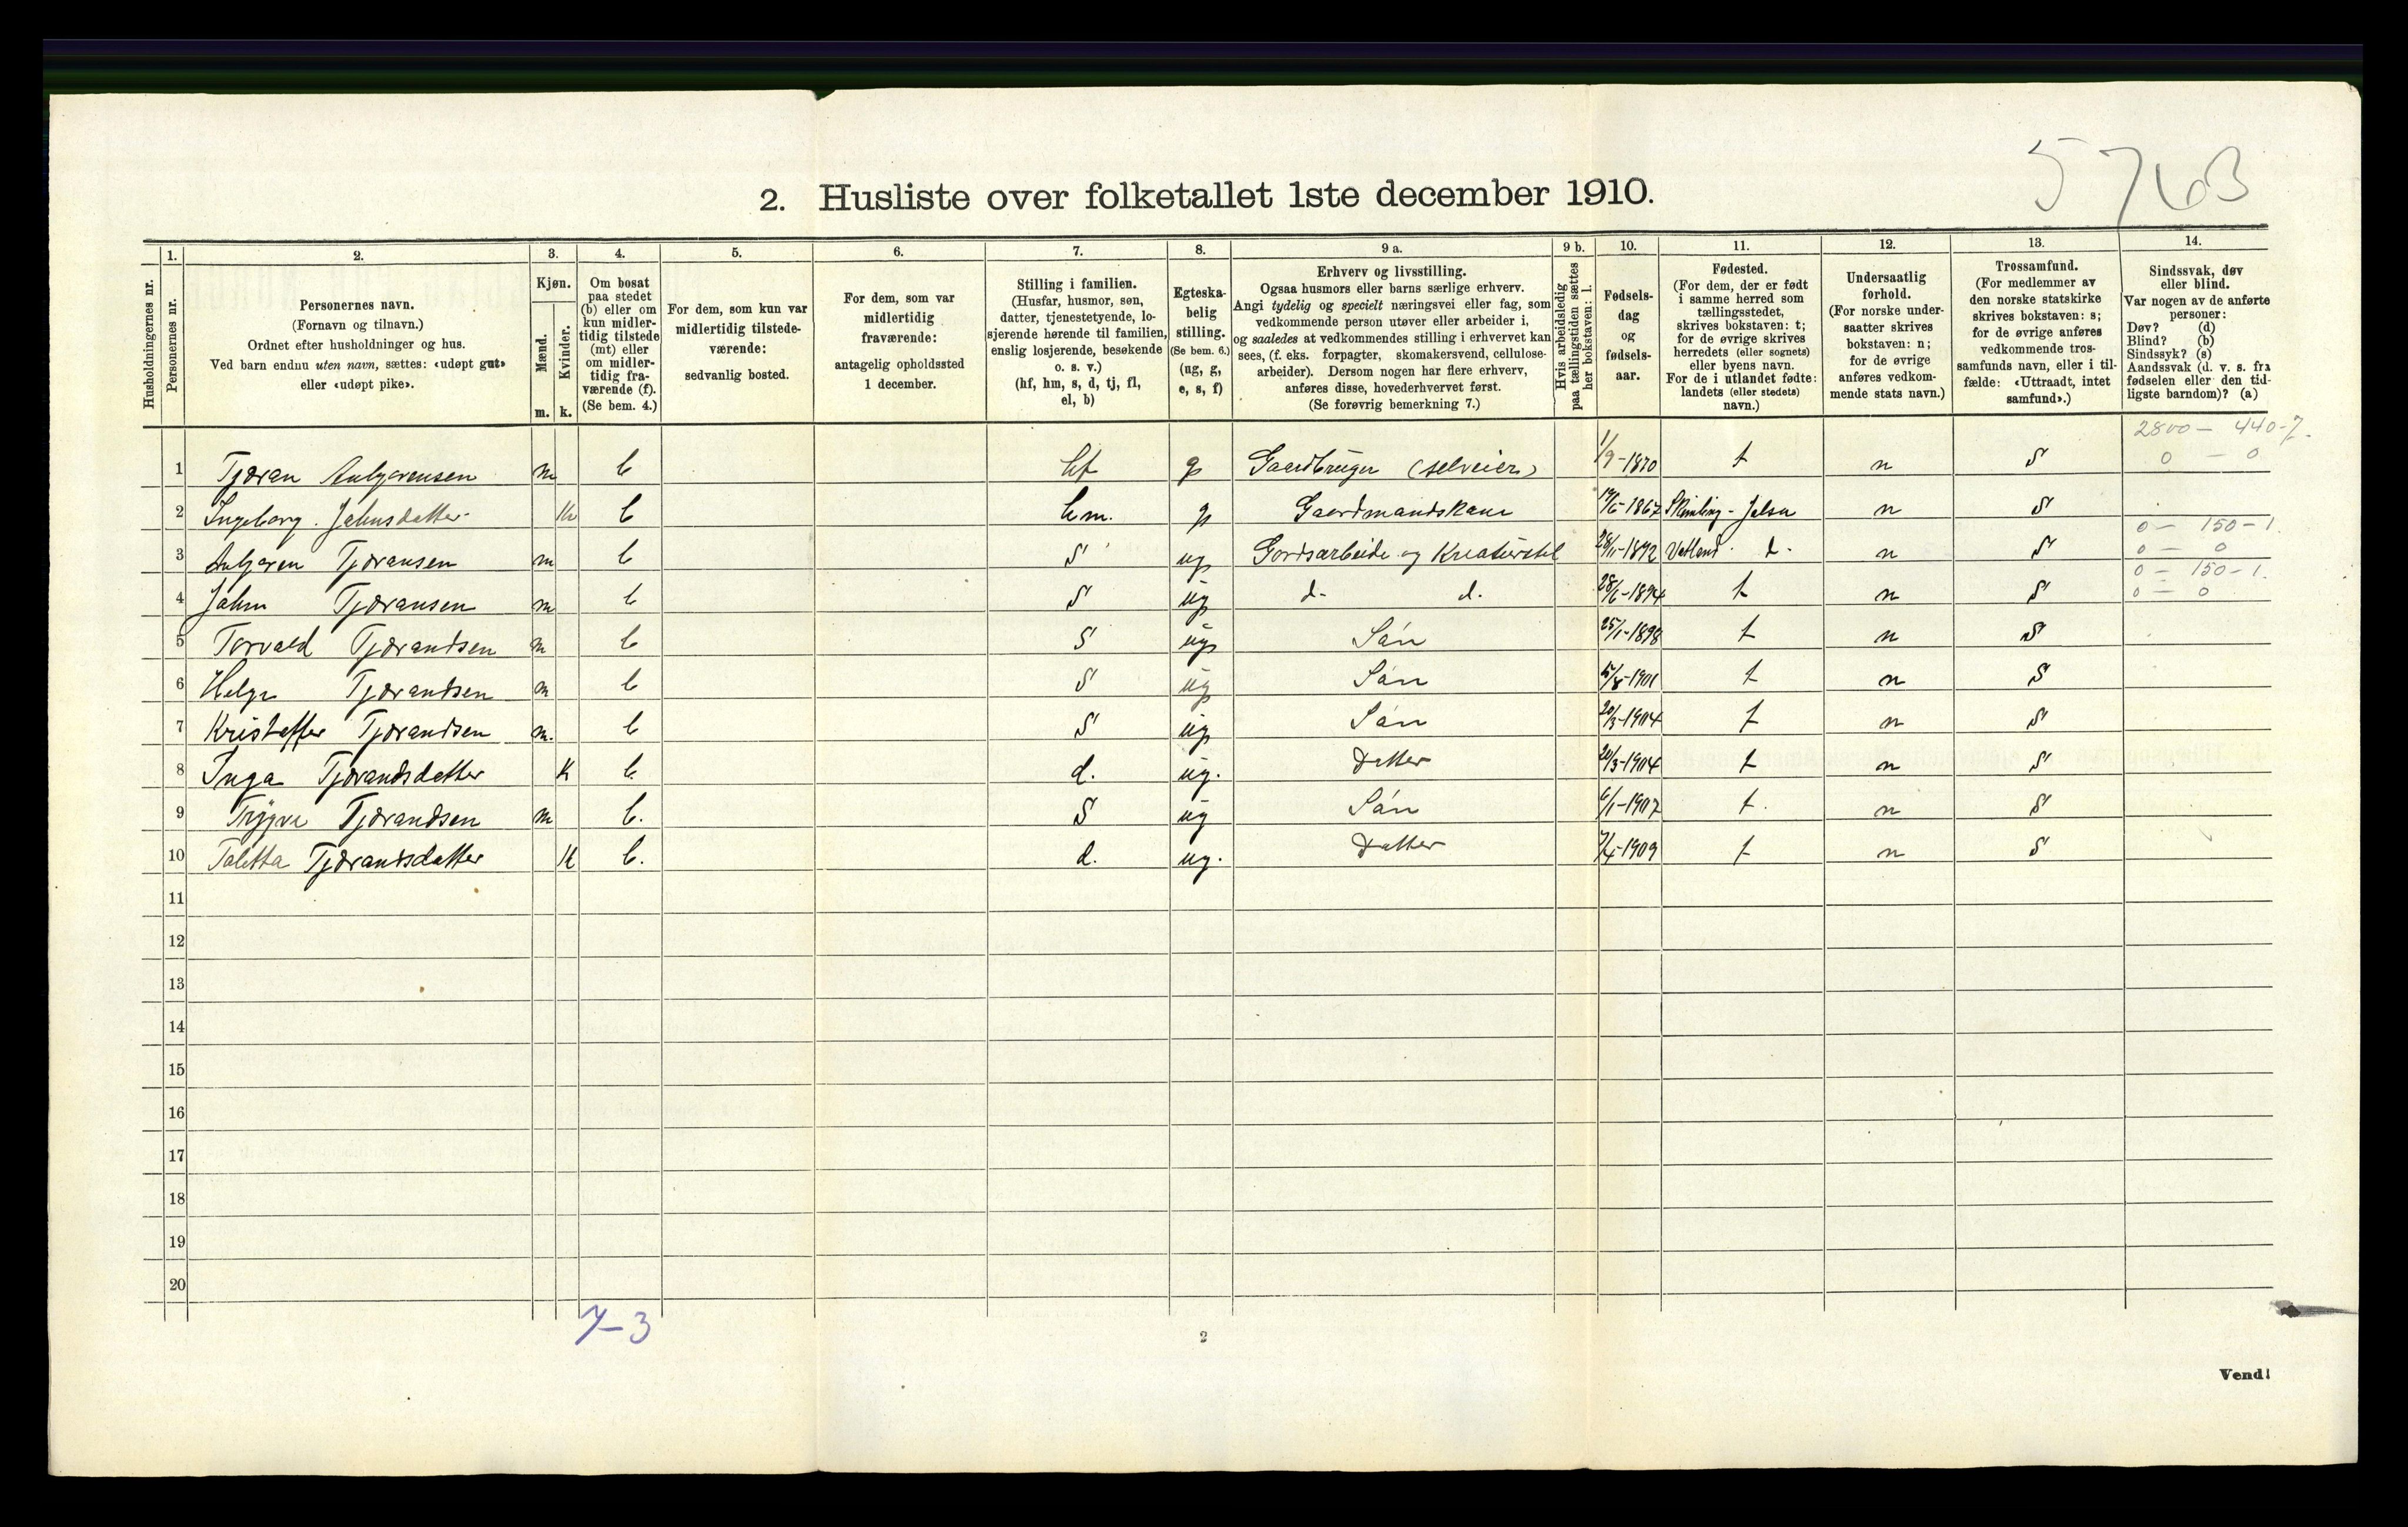 5763
2. Husliste over folketallet 1ste december 1910.
Husholdningernes nr.
1. Personernes nr.
2. Personernes navn. (Fornavn og tilnavn.) Ordnet efter husholdninger og hus. Ved barn endnu uten navn, sættes: «udøpt gut» eller «udøpt pike».
3. Kjøn. Mænd. m. Kvinder. k.
4. Om bosat paa stedet (b) eller om kun midlertidig tilstede (mt) eller om midlertidig fraværende (f). (Se bem. 4.)
5. For dem, som kun var midlertidig tilstedeværende: sedvanlig bosted.
6. For dem, som var midlertidig fraværende: antagelig opholdssted 1 december.
7. Stilling i familien. (Husfar, husmor, søn, datter, tjenestetyende, losjerende hørende til familien, enslig losjerende, besøkende o. s. v.) (hf, hm, s, d, tj, fl, el, b)
8. Egteskabelig stilling. (Se bem. 6.) (ug, g, e, s, f)
9 a. Erhverv og livsstilling. Ogsaa husmors eller barns særlige erhverv. Angi tydelig og specielt næringsvei eller fag, som vedkommende person utøver eller arbeider i, og saaledes at vedkommendes stilling i erhvervet kan sees, (f. eks. forpagter, skomakersvend, cellulosearbeider). Dersom nogen har flere erhverv, anføres disse, hovederhvervet først. (Se forøvrig bemerkning 7.)
9 b. Hvis arbeidsledig paa tællingstiden sættes her bokstaven: l.
10. Fødselsdag og fødselsaar.
11. Fødested. (For dem, der er født i samme herred som tællingsstedet, skrives bokstaven: t; for de øvrige skrives herredets (eller sognets) eller byens navn. For de i utlandet fødte: landets (eller stedets) navn.)
12. Undersaatlig forhold. (For norske undersaatter skrives bokstaven: n; for de øvrige anføres vedkommende stats navn.)
13. Trossamfund. (For medlemmer av den norske statskirke skrives bokstaven: s; for de øvrige anføres vedkommende trossamfunds navn, eller i tilfælde: «Uttraadt, intet samfund».)
14. Sindssvak, døv eller blind. Var nogen av de anførte personer: Døv? (d) Blind? (b) Sindssyk? (s) Aandssvak (d. v. s. fra fødselen eller den tidligste barndom)? (a)
2800 - 440-7.
1 Tjøran m b hf g Gaardbruger (selveier) 1/9-1870 t n S 0 - 0
2 Ingeborg Johnsdatter k b hm. g Gaardmandskone -1867 Jelsa n S
0 - 150-1
3 Tjøransen m b S ug Gordsarbeide og Kreaturstel 28/11-1892 Vatland d. n S 0 - 0
0 - 150-1.
4 John Tjøransen m b S ug d. d. 28/6-1894 t n S 0 - 0
5 Torvald Tjørandsen m b S ug Sön 25/1-1898 t n S
6 Helge Tjørandsen m b S ug Sön 5/8-1901 t n S
7 Kristoffer Tjørandsen m. b S ug Sön 20/3-1904 t n S
8 Inga Tjørandsdatter K b d. ug. Datter 20/3-1904 t n S
9 Trygve Tjørandsen m b. S ug Sön 6/1-1907 t. n S
10 Toletta Tjørandsdatter K b. d. ug. Datter 7/4-1909 t n S
11
12
13
14
15
16
17
18
19
20
7-3
2
Vend!